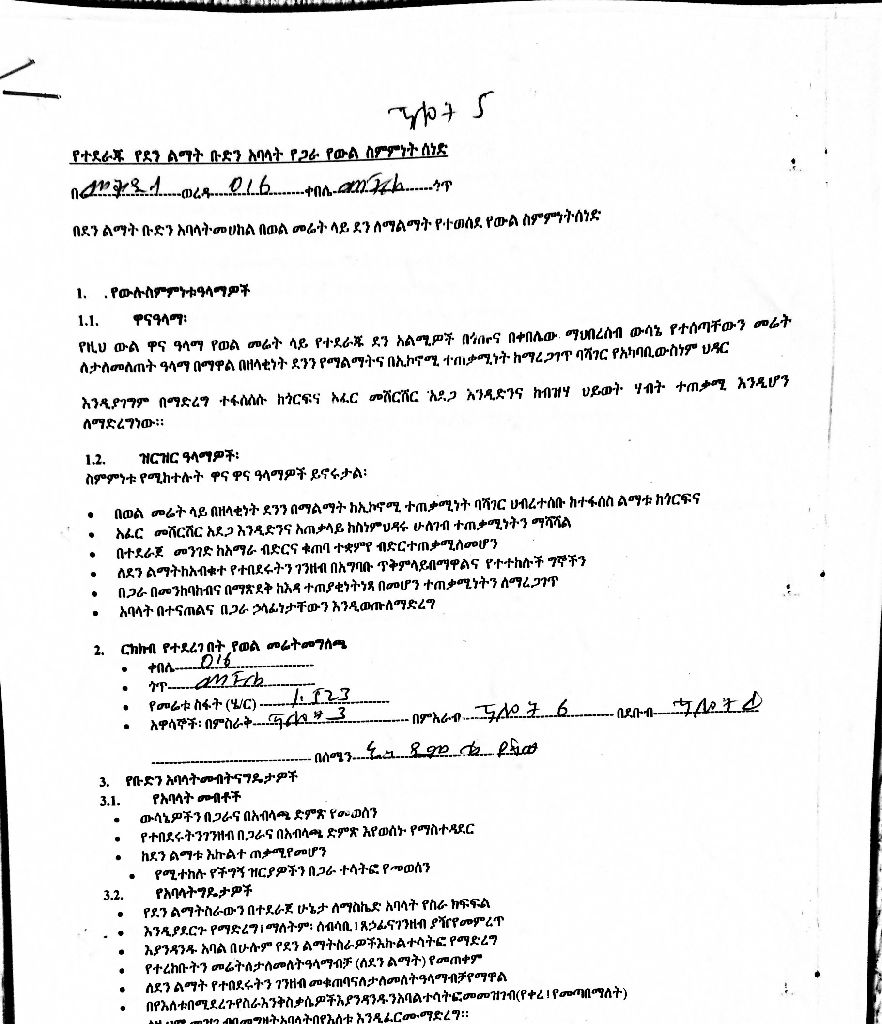 ፕሎት 5
የተደራጁ የደን ልማት ቡድን አባላት የጋራ የውል ስምምነት ሰነድ
በ ወረዳ 016 ቀበሌ ጎጥ
በደን ልማት ቡድን አባላትመሀከል በወል መሬት ላይ ደን ለማልማት የተወሰደ የውል ስምምነትሰነድ
1. .የውሉስምምነቱዓላማዎች
1.1. ዋናዓላማ፡
የዚህ ውል ዋና ዓላማ የወል መሬት ላይ የተደራጁ ደን አልሚዎች በጎጡና በቀበሌው ማህበረሰብ ውሳኔ የተሰጣቸውን መሬት
ለታለመለጠት ዓላማ በማዋል በዘላቂነት ደንን የማልማትና በኢኮኖሚ ተጠቃሚነት ከማረጋገጥ ባሻገር የአካባቢውስነም ህዳር
እንዲያገግም በማድረግ ተፋሰሰሱ ከጎርፍና አፈር መሸርሸር አደጋ እንዲድንና ከብዝሃ ህይወት ሃብት ተጠቃሚ እንዲሆን
ለማድረግነው።
1.2. ዝርዝር ዓላማዎች፡
ስምምነቱ የሚከተሉት ዋና ዋና ዓላማዎች ይኖሩታል፡
• በወል መሬት ላይ በዘላቂነት ደንን በማልማት ከኢኮኖሚ ተጠቃሚነት ባሻገር ሀብረተሰቡ ከተፋሰስ ልማቱ ከጎርፍና
• አፈር መሸርሸር አደጋ እንዲድንና አጠቃላይ ከስነምህዳሩ ሁለገብ ተጠቃሚነትን ማሻሻል
• በተደራጀ መንገድ ከአማራ ብድርና ቁጠባ ተቋምየ ብድርተጠቃሚለመሆን
• ለደን ልማትከአብቁተ የተበደሩትን ገንዘብ በአግባቡ ጥቅምላይበማዋልና የተተከሉች ግኞችን
• በጋራ በመንከባከብና በማጽደቅ ከእዳ ተጠያቂነትነጻ በመሆን ተጠቃሚነትን ለማረጋገጥ
• አባላት በተናጠልና በጋራ ኃላፊነታቸውን እንዲወጡለማድረግ
2. ርክክብ የተደረገበት የወል መሬትመግለጫ
• ቀበሌ 016
• ጎጥ
• የመሬቱ ስፋት (ሄ/ር) 1.
• አዋሳኞች፡ በምስራቅ ፕሎት 3 በምእራብ ፕሎት 6 በደቡብ ፕሎት
በሰሜን
3. የቡድን አባላትመብትናግዴታዎች
3.1. የአባላት መብቶች
• ውሳኔዎችን በጋራና በአብላጫ ድምጽ የመወሰን
• የተበደሩትንገንዘብ በጋራና በአብላጫ ድምጽ እየወሰኑ የማስተዳደር
• ከደን ልማቱ እኩልተ ጠቃሚየመሆን
• የሚተከሉ የችግኝ ዝርያዎችን በጋራ ተሳትፎ የመወሰን
3.2. የአባላትግዴታዎች
• የደን ልማትስራውን በተደራጀ ሁኔታ ለማስኬድ አባላት የስራ ክፍፍል
• እንዲያደርጉ የማድረግ፤ማለትም፡ ሰብሳቢ፤ጸኃፊናገንዘብ ያዥየመምረጥ
• እያንዳንዱ አባል በሁሉም የደን ልማትስራዎችእኩልተሳትፎ የማድረግ
• የተረከቡትን መሬትለታለመለትዓላማብቻ (ለደን ልማት) የመጠቀም
• ለደን ልማት የተበደሩትን ገንዘብ መቁጠባናለታለመለትዓላማብቻየማዋል
• በየእለቱበሚደረጉየስራእንቅስቃሴዎችእያንዳንዱንአባልተሳትፎመመዝገብ(የቀረ፤የመጣበማለት)